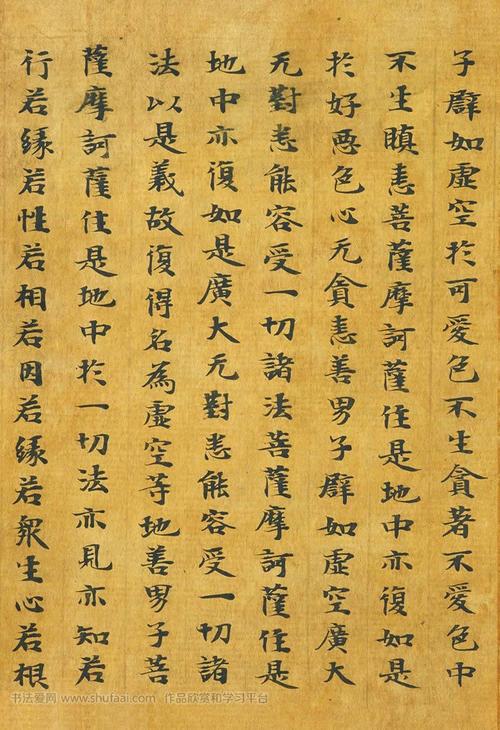 子辟如虛空於可愛色不生貪著不愛色中
不生瞋恚菩薩摩訶薩住是地中亦復如是
於好惡色心无貪恚善男子辟如虛空廣大
无對悉能容受一切諸法菩薩摩訶薩住是
地中亦復如是廣大无對悉能容受一切諸
法以是義故復得名為虛空等地善男子菩
薩摩訶薩住是地中於一切法亦見亦知若
行若緣若性若相若因若緣若衆生心若根
书法爱网 www.shufaai.com 作品欣赏和学习平台